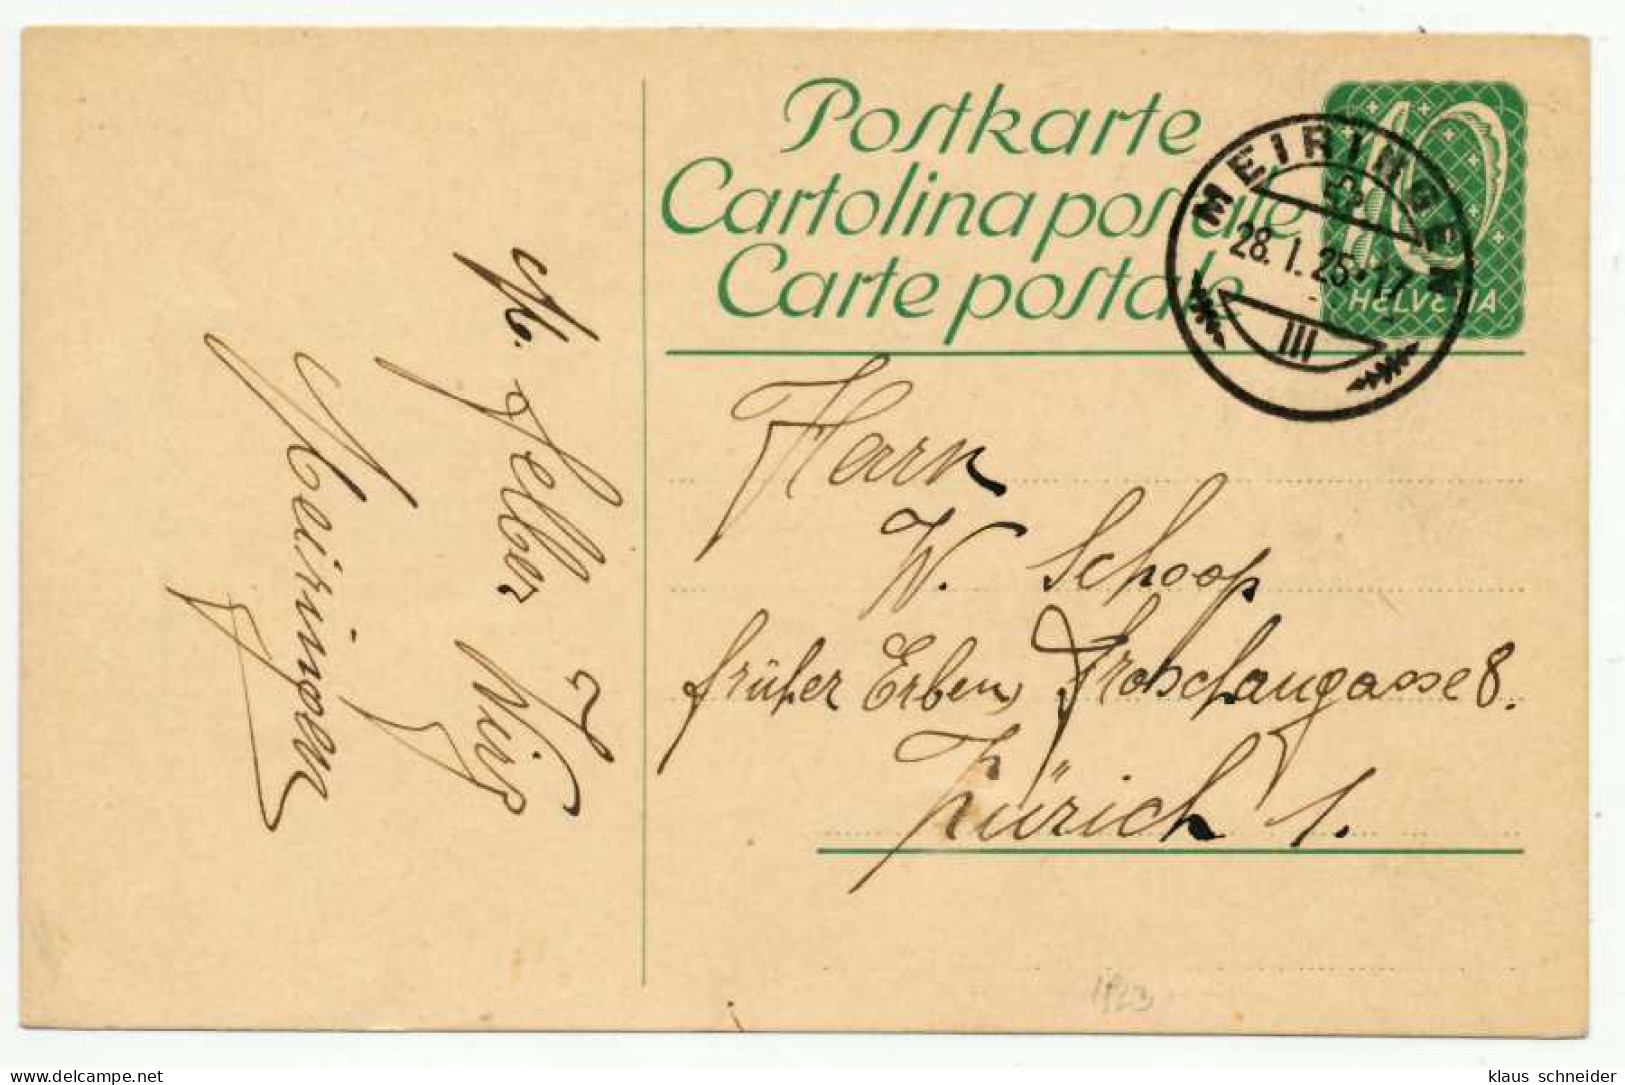 Postkarte
Cartolina postale
Carte postale
10
HELVETIA
MEIRINGEN
28.I.25.17
III
Herrn
W. Schoop
früher Erben, Froschaugasse 8.
Zürich 1.
Meiringen
1923
klaus schneider
delcampe.net